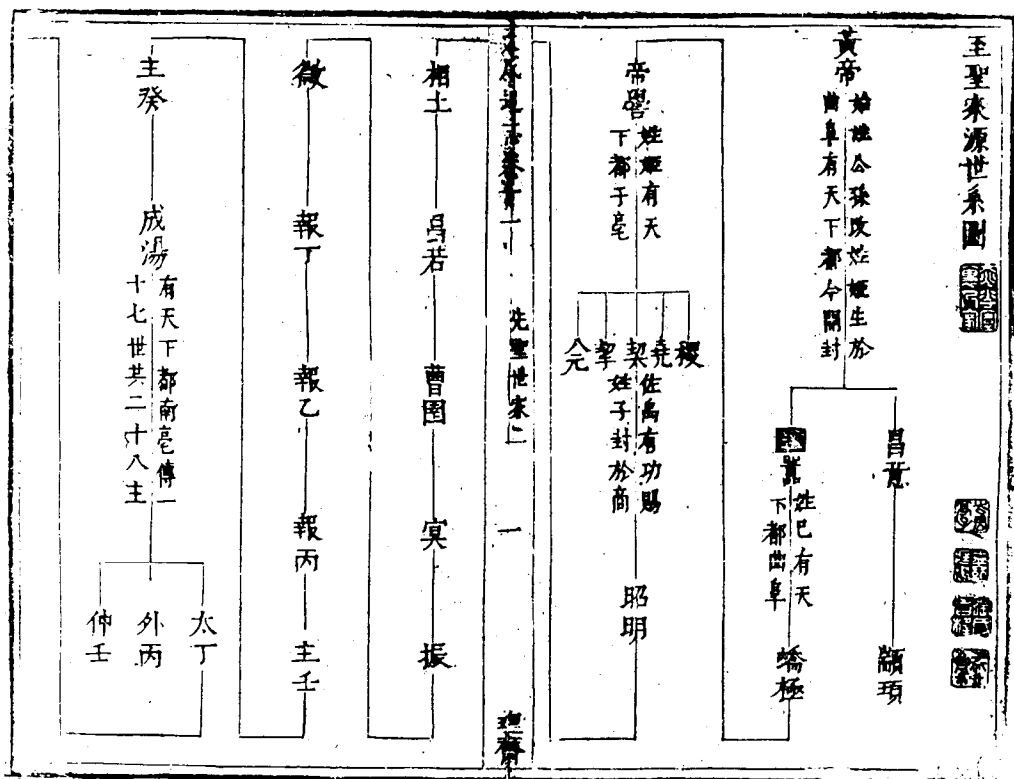 至聖來源世系圖
黃帝
始姓公孫改姓姬生於
曲阜有天下都今開封
昌意
顓頊
囂
姓巳有天
下都曲阜
蟜極
帝嚳
姓姬有天
下都于亳
稷
堯
契
佐禹有功賜
姓子封於商
挈
八元
昭明
先聖世家二
一
相土
昌若
曹圉
冥
振
微
報丁
報乙
報丙
主壬
主癸
成湯
有天下都南亳傳一
十七世共二十八主
太丁
外丙
仲壬